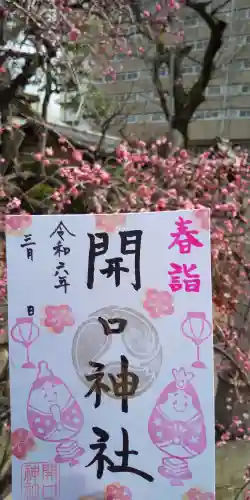 春詣
開口神社
令和六年
三月 日
開口
神社